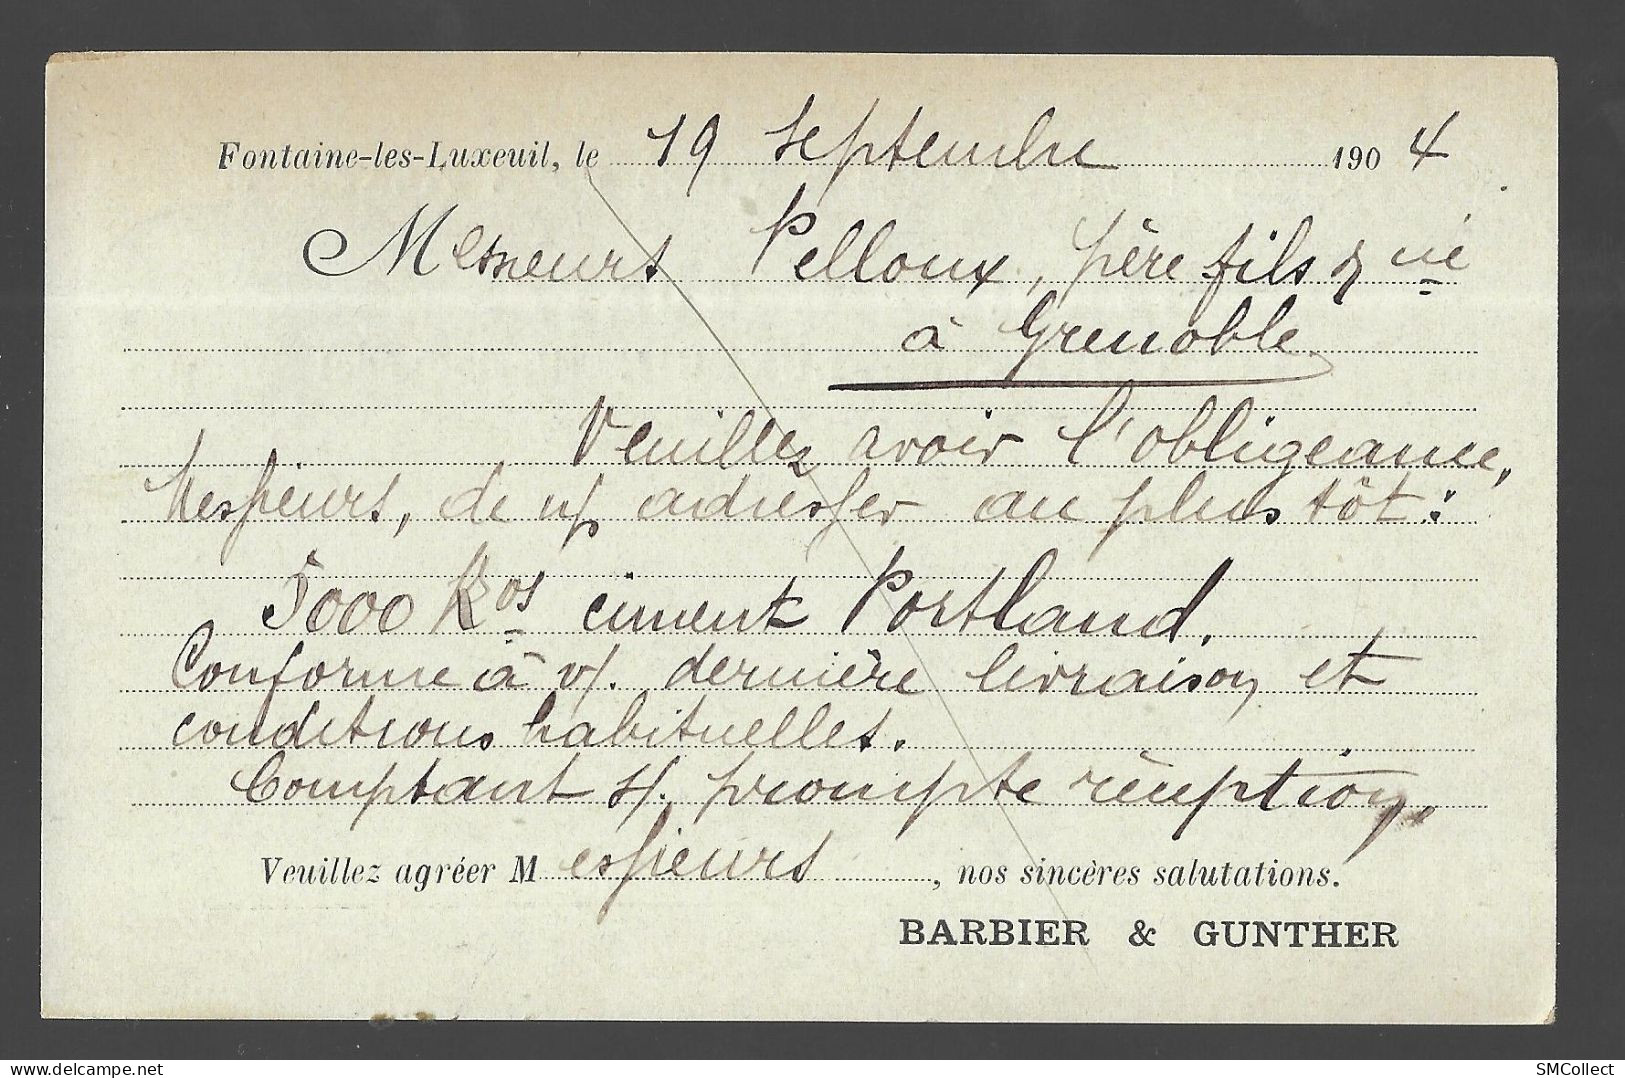 Fontaine-les-Luxeuil, le 19 Septembre 1904
Messieurs Pelloux, père fils & Cie
à Grenoble
Veuillez avoir l'obligeance,
Messieurs, de n/s adresser au plus tôt :
5000 Kos ciment Portland.
Conforme à v/. dernière livraison et
conditions habituelles.
Comptant s/. prompte réception.
Veuillez agréer Messieurs, nos sincères salutations.
BARBIER & GUNTHER
©SMCollect